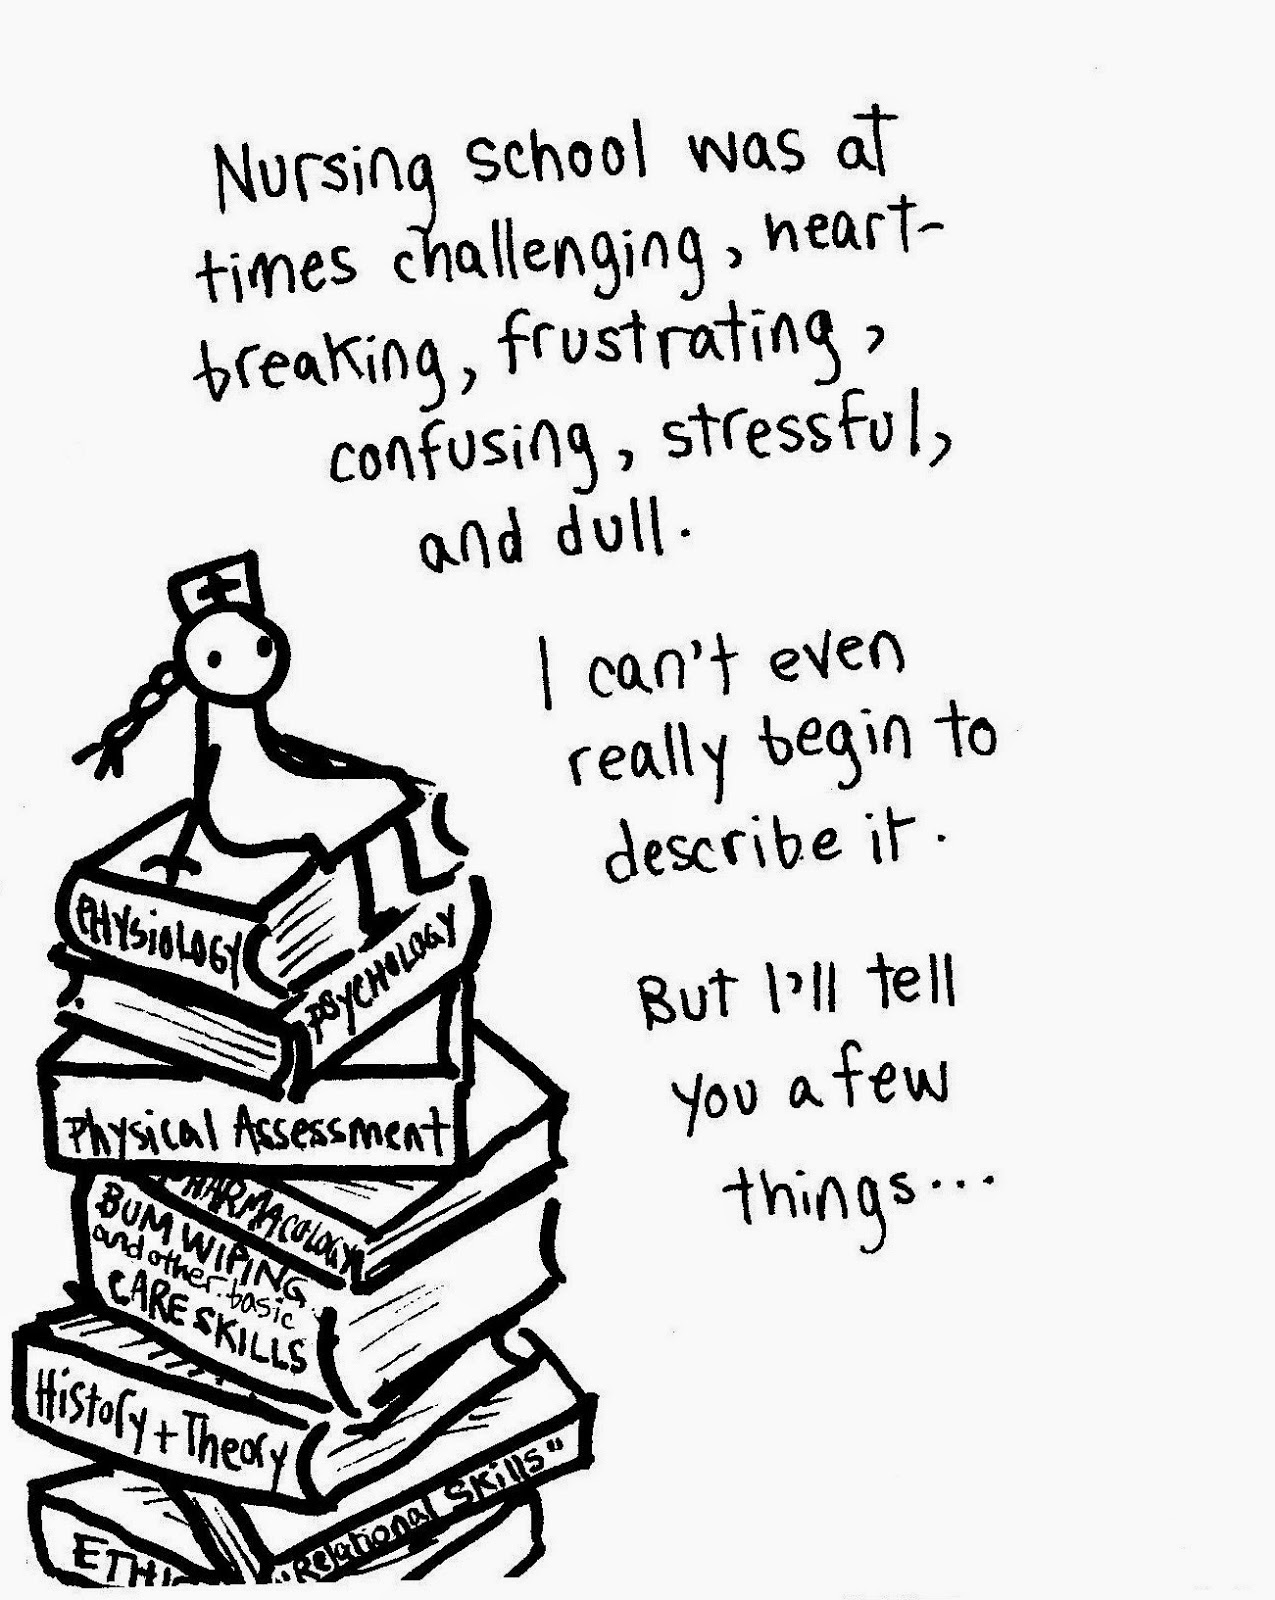 Nursing school was at
times challenging, heart-
breaking, frustrating,
confusing, stressful,
and dull.
I can't even
really begin to
describe it.
But I'll tell
you a few
things...
PHYSIOLOGY
PSYCHOLOGY
Physical Assessment
PHARMACOLOGY
BUM WIPING
and other basic
CARE SKILLS
History + Theory
"Relational Skills"
ETHI